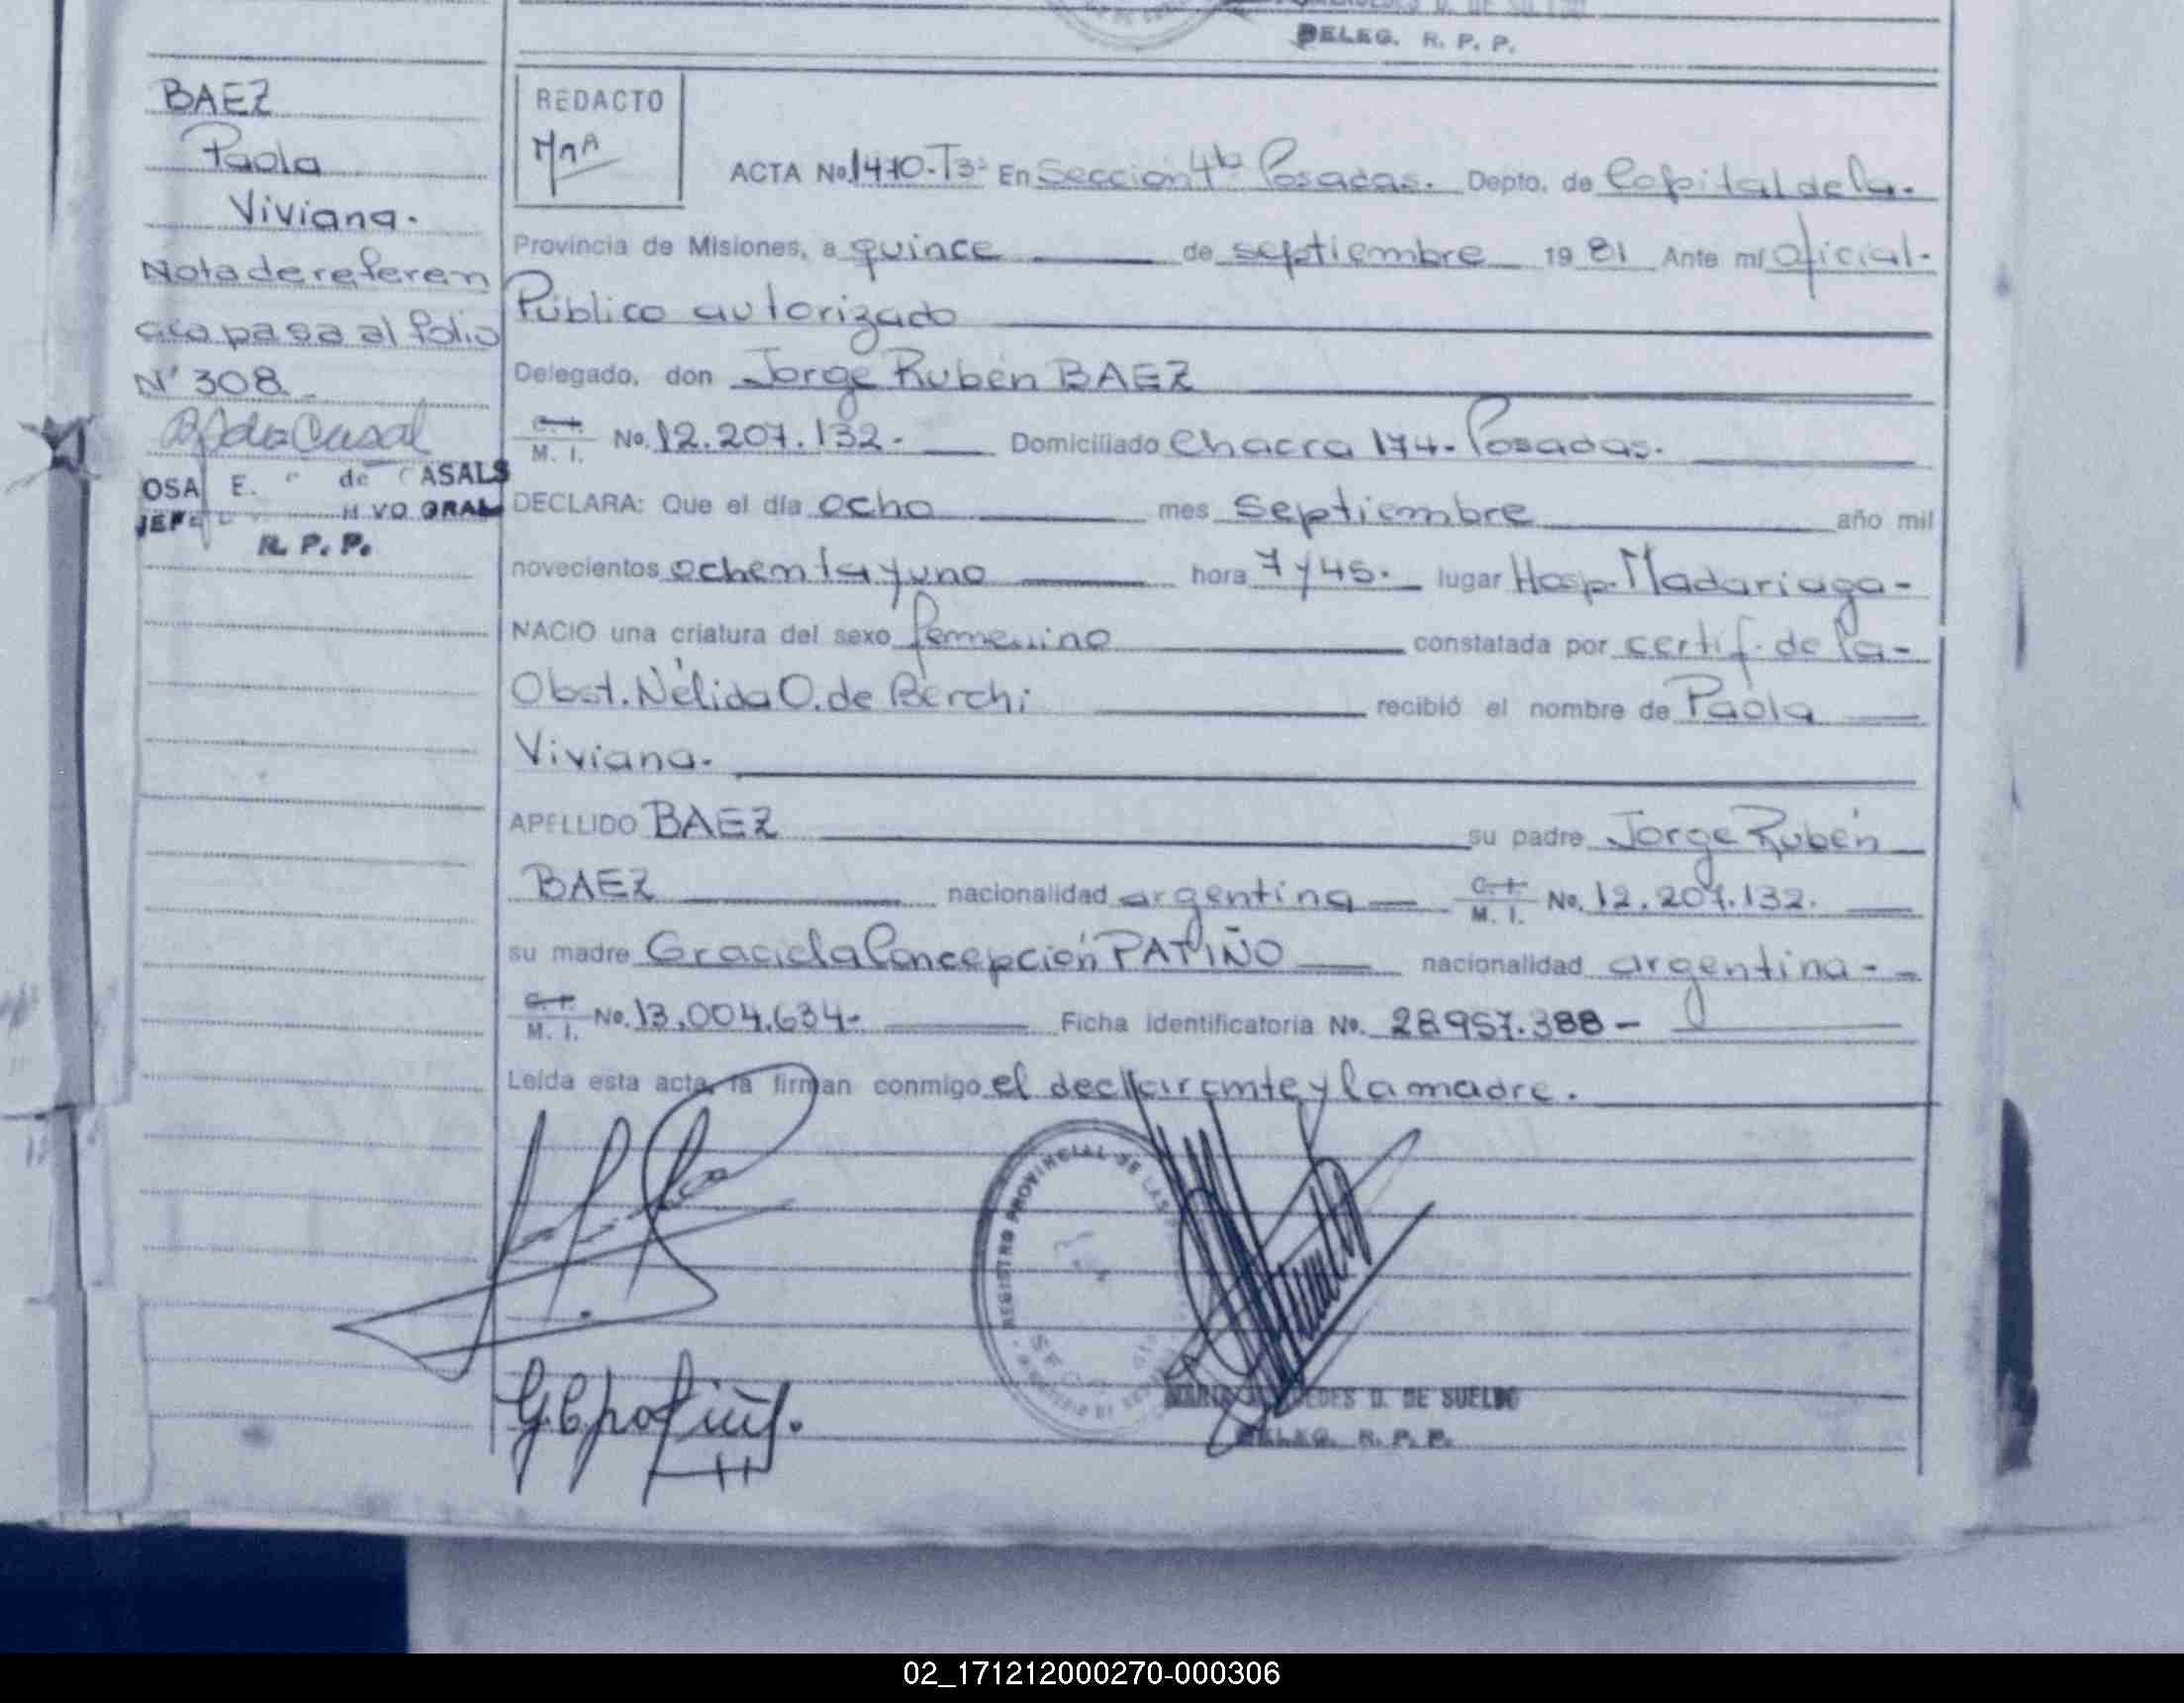 DELEG. R. P. P.
BAEZ
Paola
Viviana.
Nota de referen
cia pasa al folio
Nº 308.
OSA E. de CASALS
R. P. P.
REDACTO
ACTA No. 1410-Tº3º En Sección 4ta Posadas. Depto. de Capital de la.
Provincia de Misiones, a quince de septiembre 1981 Ante mí oficial.
Público autorizado
Delegado, don Jorge Rubén BAEZ
C. I. M. I. No. 12.207.132.- Domiciliado Chacra 174- Posadas.
DECLARA: Que el día ocho mes septiembre año mil
novecientos ochenta y uno hora 7 y 45. lugar Hosp. Madariaga-
NACIO una criatura del sexo femenino constatada por certif. de la-
Obst. Nélida O. de Berchi recibió el nombre de Paola
Viviana.
APELLIDO BAEZ su padre Jorge Rubén
BAEZ nacionalidad argentina C. I. M. I. No. 12.207.132.
su madre Graciela Concepción PATIÑO nacionalidad argentina-
C. I. M. I. No. 13.004.634- Ficha identificatoria No. 28957.388-
Leída esta acta, la firman conmigo el declarante y la madre.
REGISTRO PROVINCIAL DE LAS
DE SUELDO
DELEG. R. P. P.
02_171212000270-000306